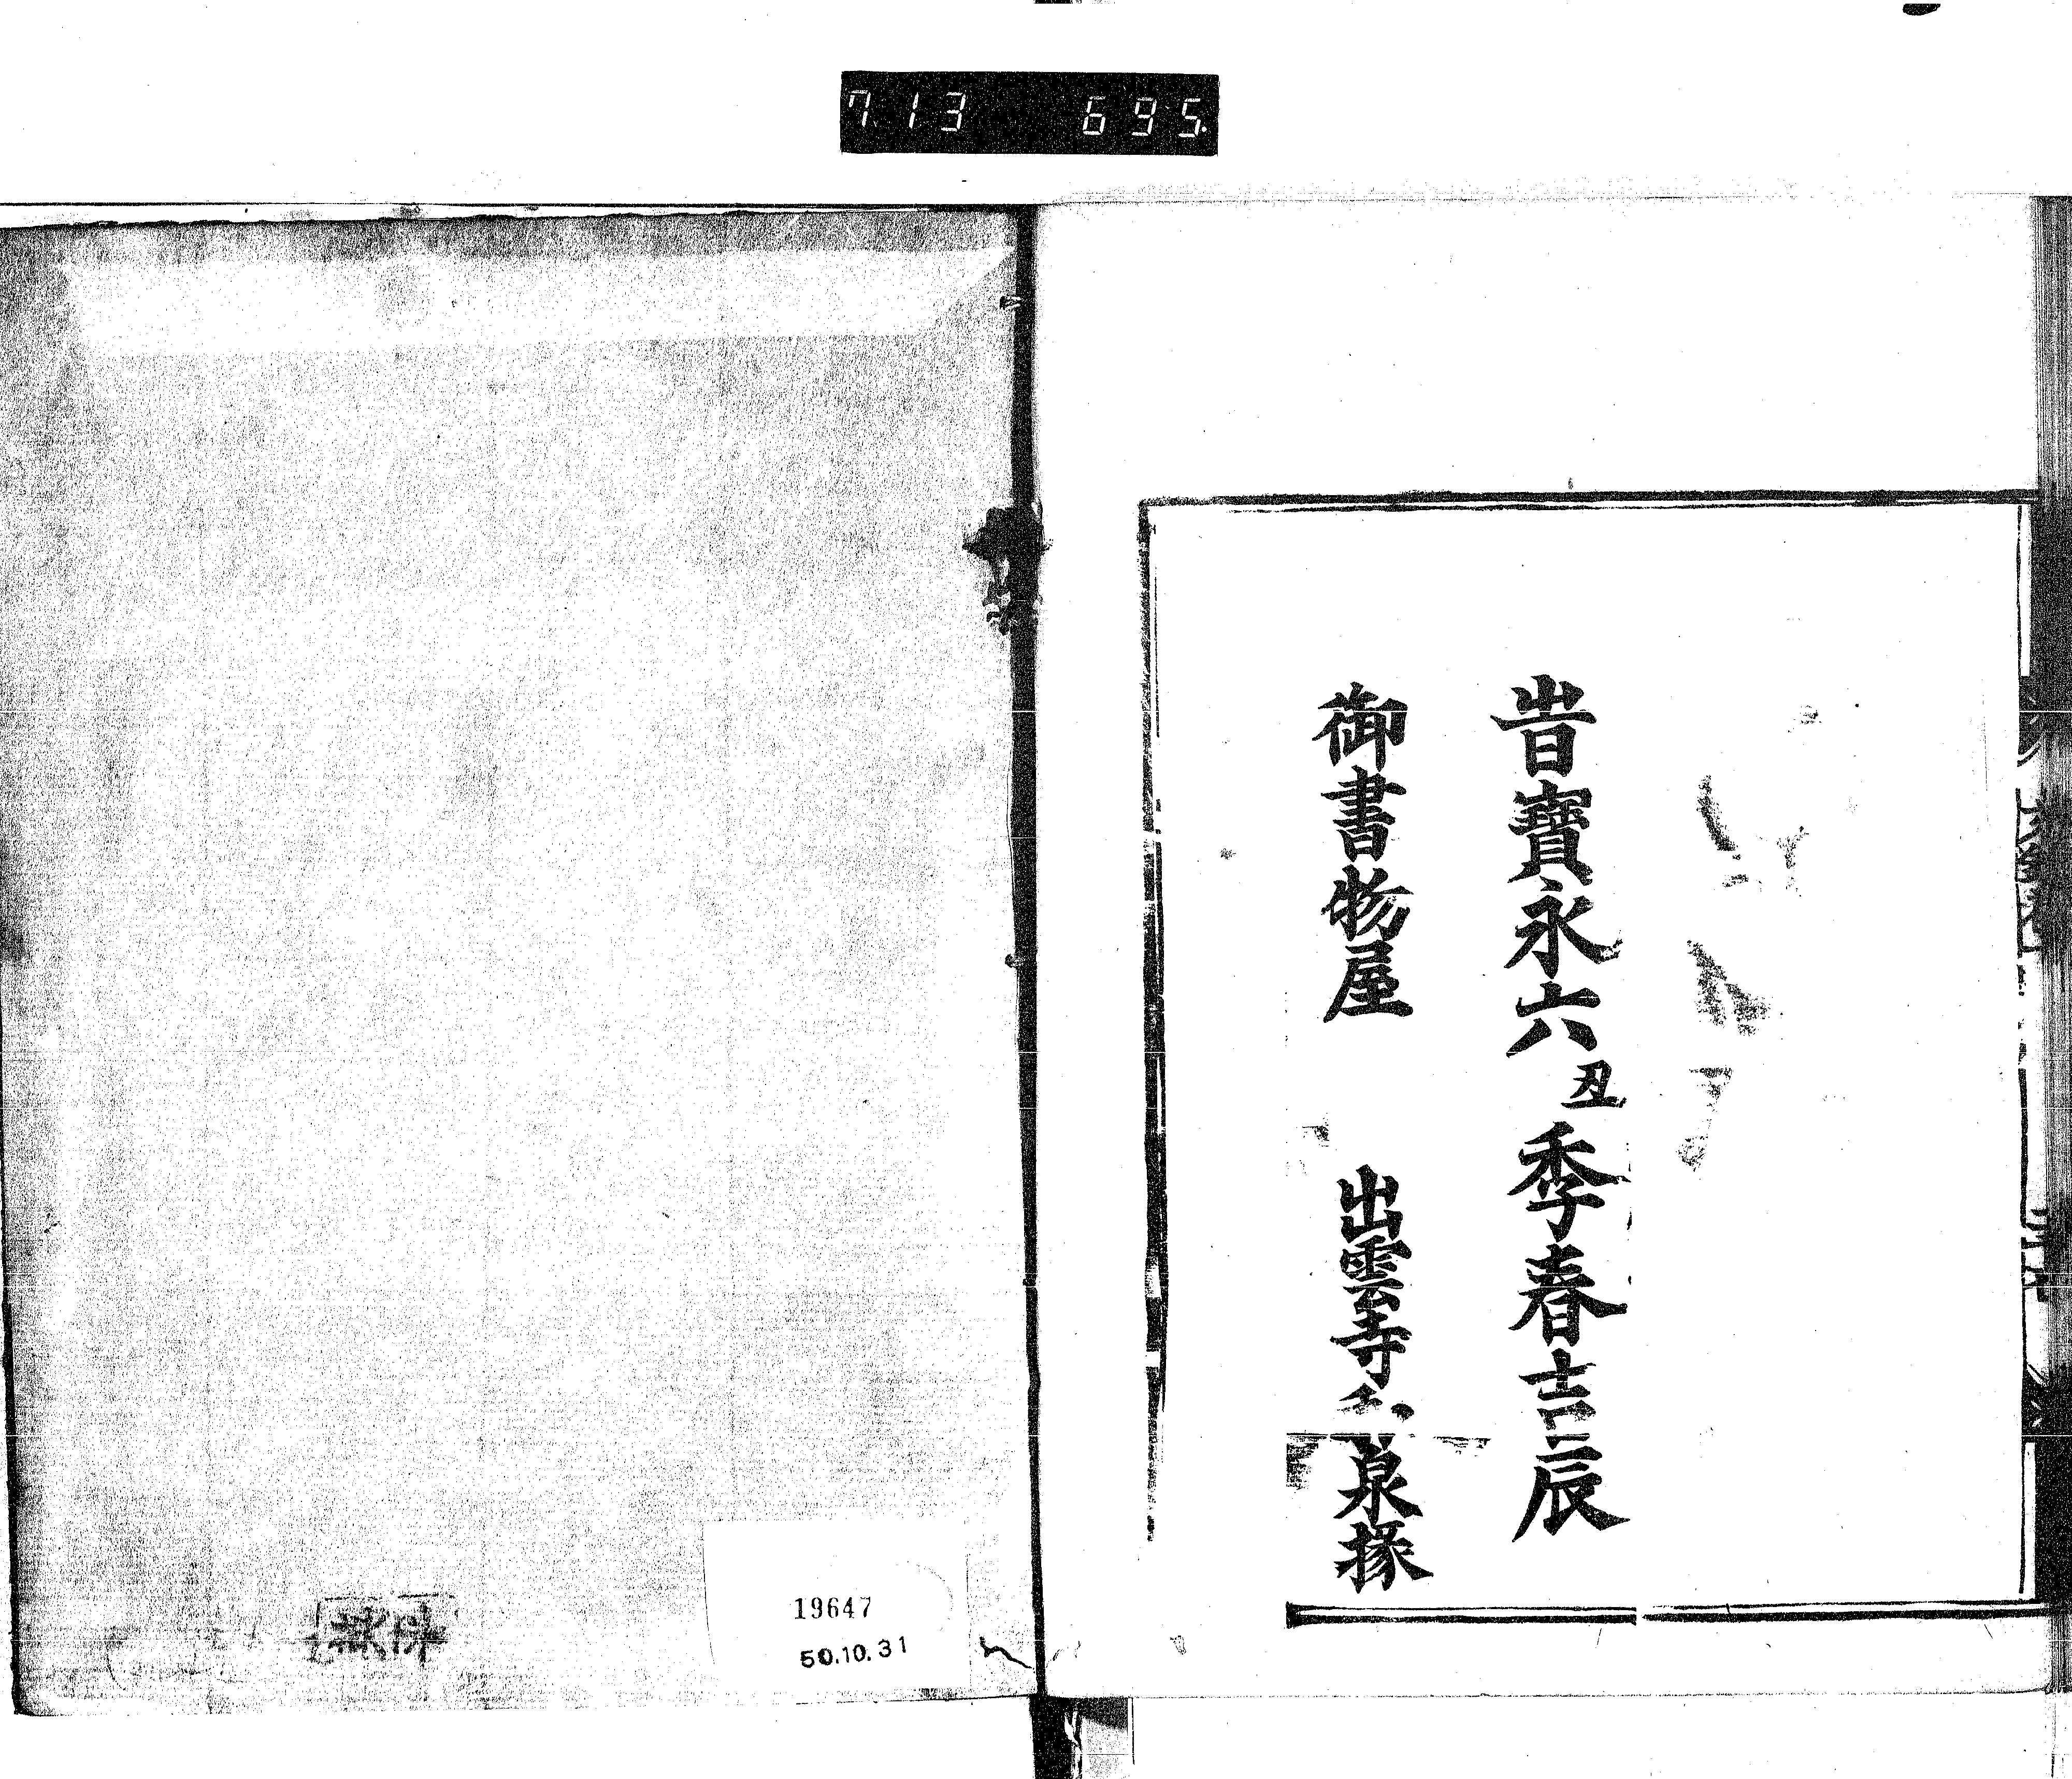 7.13 695.
旹寶永六丑季春吉辰
御書物屋 出雲寺和泉掾
19647
50.10.31